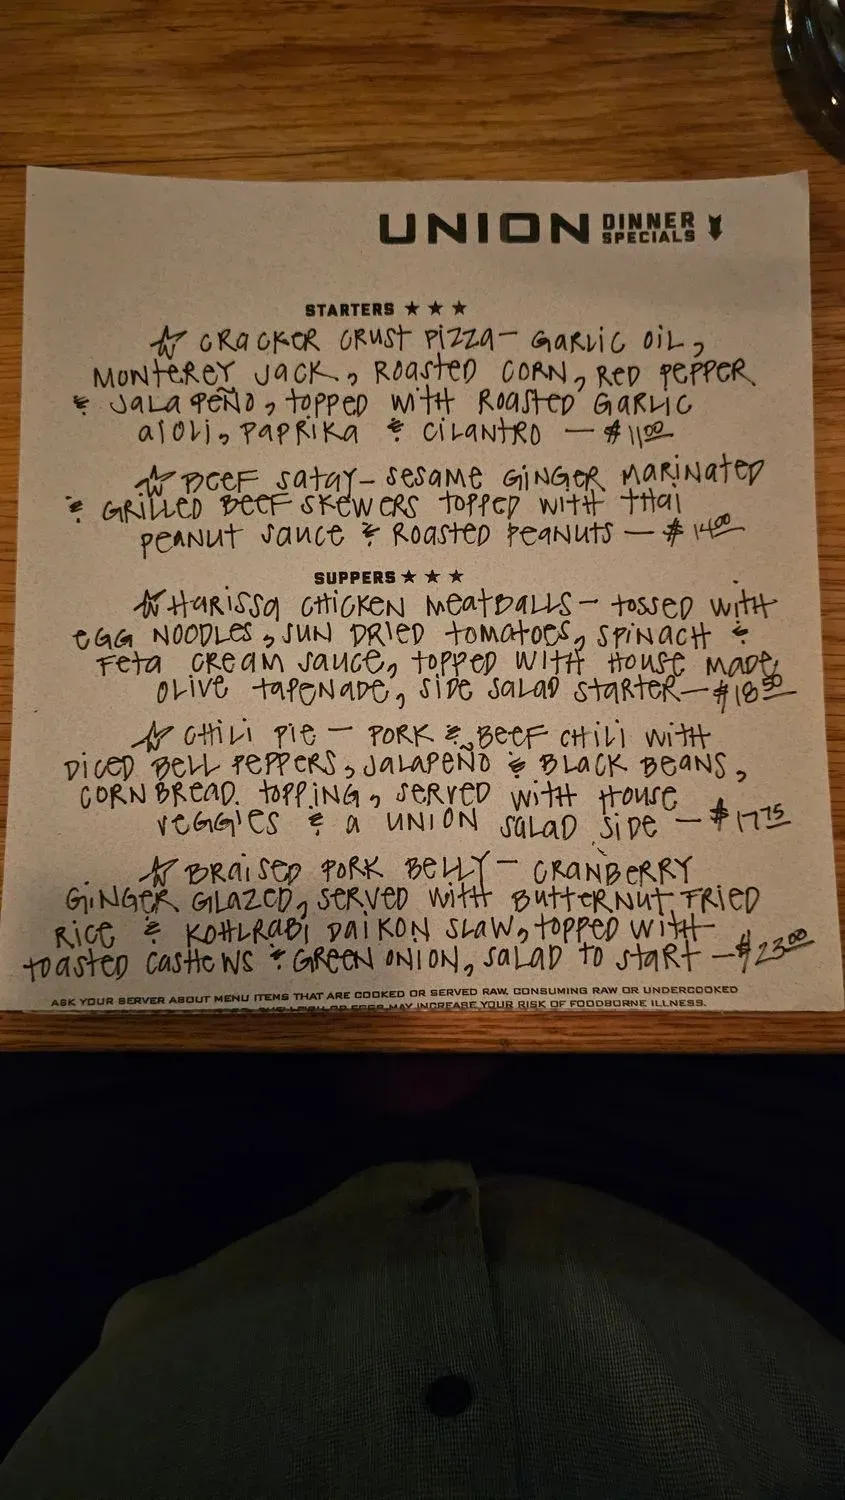 UNION DINNER SPECIALS
STARTERS ★ ★ ★
☆ CRACKER CRUST PIZZA - GARLIC OIL,
MONTEREY JACK, ROASTED CORN, RED PEPPER
& JALAPEÑO, TOPPED WITH ROASTED GARLIC
AIOLI, PAPRIKA & CILANTRO - $11.00
☆ BEEF SATAY - SESAME GINGER MARINATED
& GRILLED BEEF SKEWERS TOPPED WITH THAI
PEANUT SAUCE & ROASTED PEANUTS - $14.00
SUPPERS ★ ★ ★
☆ HARISSA CHICKEN MEATBALLS - TOSSED WITH
EGG NOODLES, SUN DRIED TOMATOES, SPINACH &
FETA CREAM SAUCE, TOPPED WITH HOUSE MADE
OLIVE TAPENADE, SIDE SALAD STARTER - $18.50
☆ CHILI PIE - PORK & BEEF CHILI WITH
DICED BELL PEPPERS, JALAPEÑO & BLACK BEANS,
CORNBREAD TOPPING, SERVED WITH HOUSE
VEGGIES & A UNION SALAD SIDE - $17.75
☆ BRAISED PORK BELLY - CRANBERRY
GINGER GLAZED, SERVED WITH BUTTERNUT FRIED
RICE & KOHLRABI DAIKON SLAW, TOPPED WITH
TOASTED CASHEWS & GREEN ONION, SALAD TO START - $23.00
ASK YOUR SERVER ABOUT MENU ITEMS THAT ARE COOKED OR SERVED RAW. CONSUMING RAW OR UNDERCOOKED
SHELLFISH OR EGGS MAY INCREASE YOUR RISK OF FOODBORNE ILLNESS.